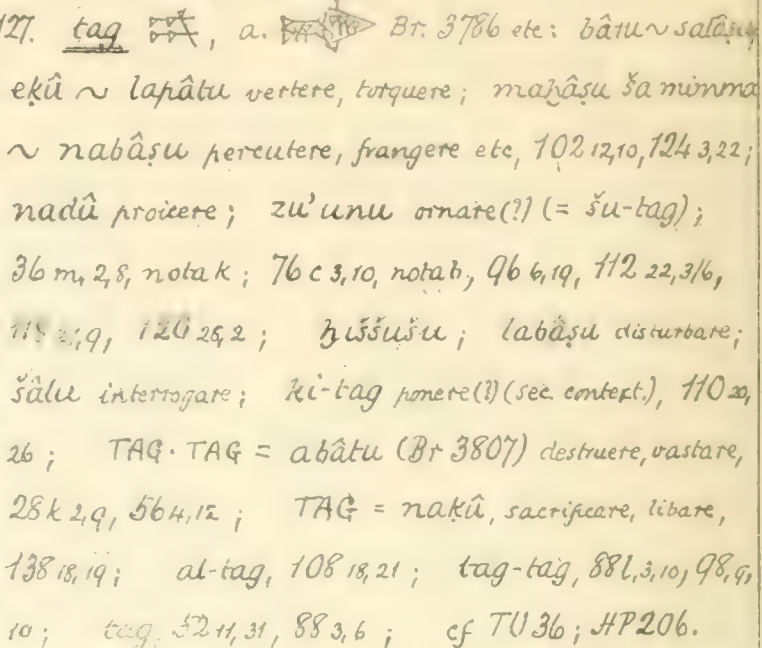 127. tag, a. Br. 3786 etc: bâtu ~ salâṣu,
eḳû ~ lapâtu vertere, torquere; maḫâṣu ša mimma
~ nabâṣu percutere, frangere etc, 102 12,10, 124 3,22;
nadû proicere; zu'unu ornare(?) (= šu-tag);
36 m, 2,8, nota k; 76 c 3,10, nota h, 96 6,19, 112 22,3/6,
26,2; ḫiššušu; labâṣu disturbare;
šâlu interrogare; ki-tag ponere(?) (sec. context.), 110 20,
26; TAG·TAG = abâtu (Br 3807) destruere, vastare,
28 k 2,9, 56 4,12; TAG = naḳû, sacrificare, libare,
138 18,19; al-tag, 108 18,21; tag-tag, 88 l,3,10, 98,9,
10; tag, 52 11,31, 88 3,6; cf TU 36; HP 206.